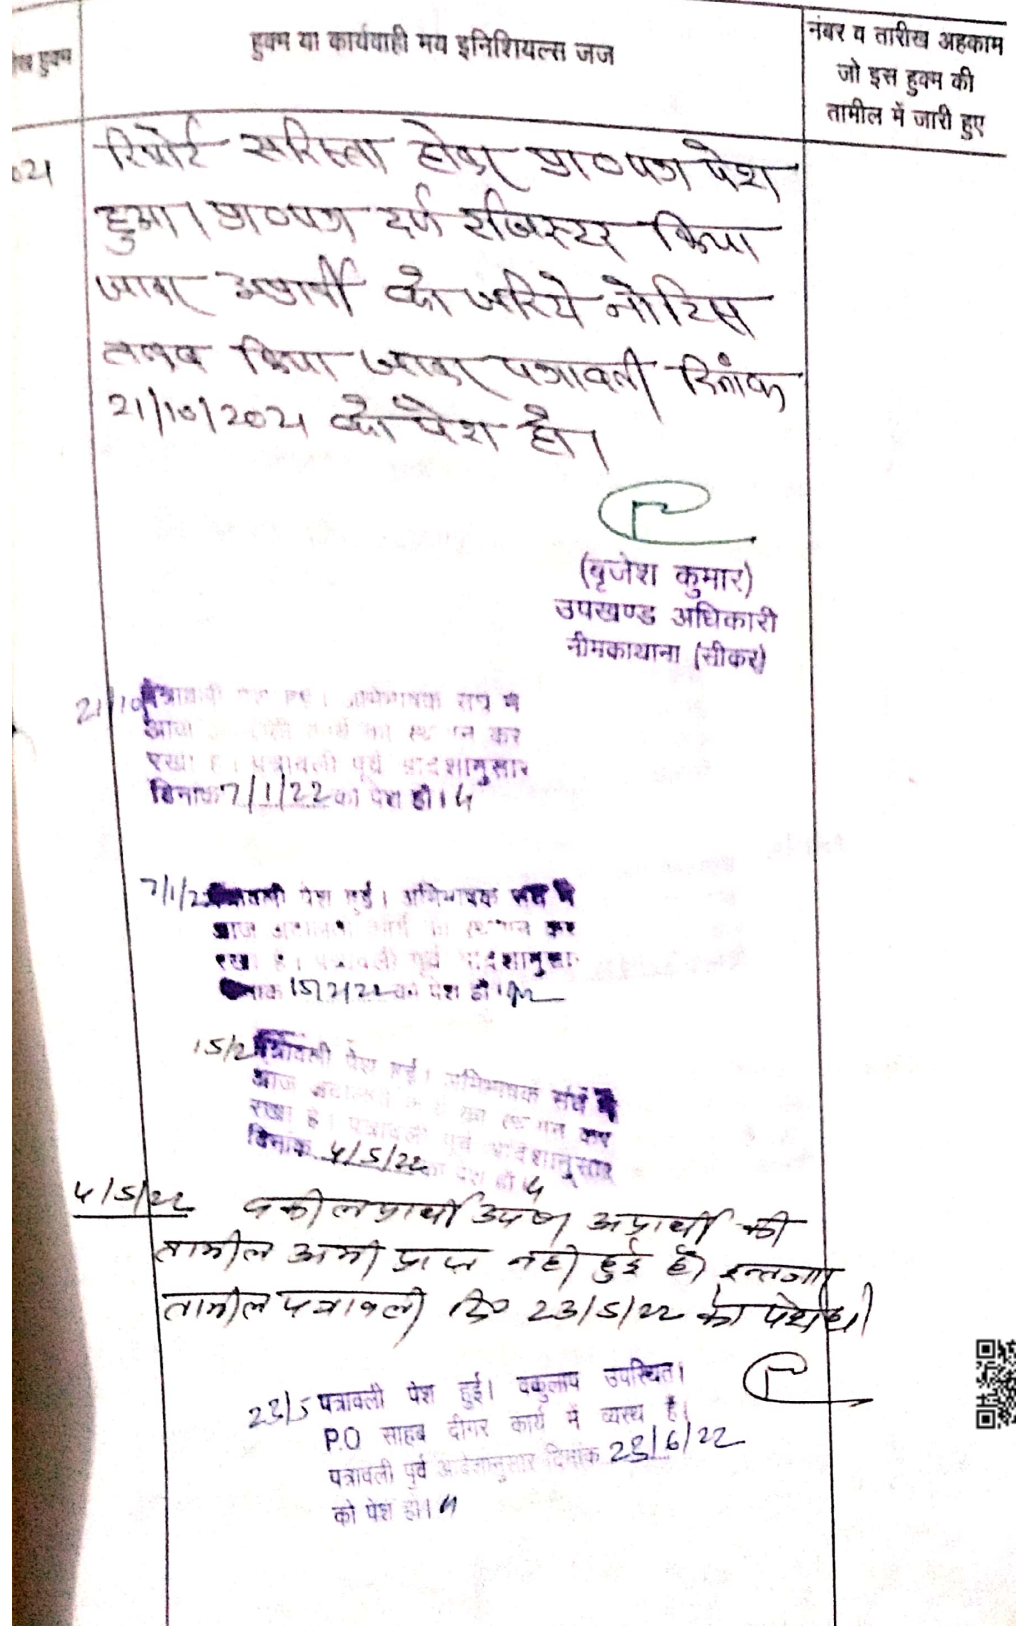 हुक्म
हुक्म या कार्यवाही मय इनिशियल्स जज
नंबर व तारीख अहकाम
जो इस हुक्म की
तामील में जारी हुए
रिपोर्ट सरिस्ता होकर प्रा०पत्र पेश
हुआ। प्रा०पत्र दर्ज रजिस्टर किया
जाकर अप्रार्थी को जरिये नोटिस
तलब किया जाकर पत्रावली दिनांक
21/10/2021 को पेश हो।
(बृजेश कुमार)
उपखण्ड अधिकारी
नीमकाथाना (सीकर)
21/10 पत्रावली पेश हुई। अभिभाषक संघ ने
आज कार्य का स्थगन कर
रखा है। पत्रावली पूर्व आदेशानुसार
दिनांक 7/1/22 को पेश हो।
7/1/22 पत्रावली पेश हुई। अभिभाषक संघ ने
आज कार्य का स्थगन कर
रखा है। पत्रावली पूर्व आदेशानुसार
दिनांक 15/2/22 को पेश हो।
15/2 पत्रावली पेश हुई। अभिभाषक संघ ने
आज का स्थगन कर
रखा है। पत्रावली पूर्व आदेशानुसार
दिनांक 4/5/22 को पेश हो।
4/5/22 वकील प्रार्थी उप० अप्रार्थी की
तामील अभी प्राप्त नही हुई है। इन्तजार
तामील पत्रावली दि० 23/5/22 को पेश हो।
23/5 पत्रावली पेश हुई। वकुलाय उपस्थित।
P.O साहब दीगर कार्य में व्यस्थ है।
पत्रावली पुर्व आदेशानुसार दिनांक 28/6/22
को पेश हो।